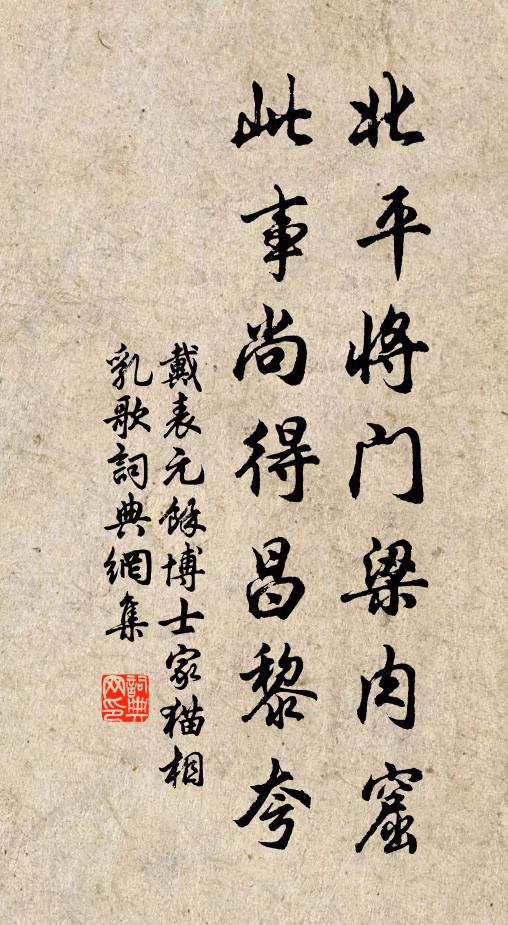 北平将门梁肉窟
此事尚得昌黎夸
戴表元餘博士家猫相
乳歌詞典網集
詞典
网印